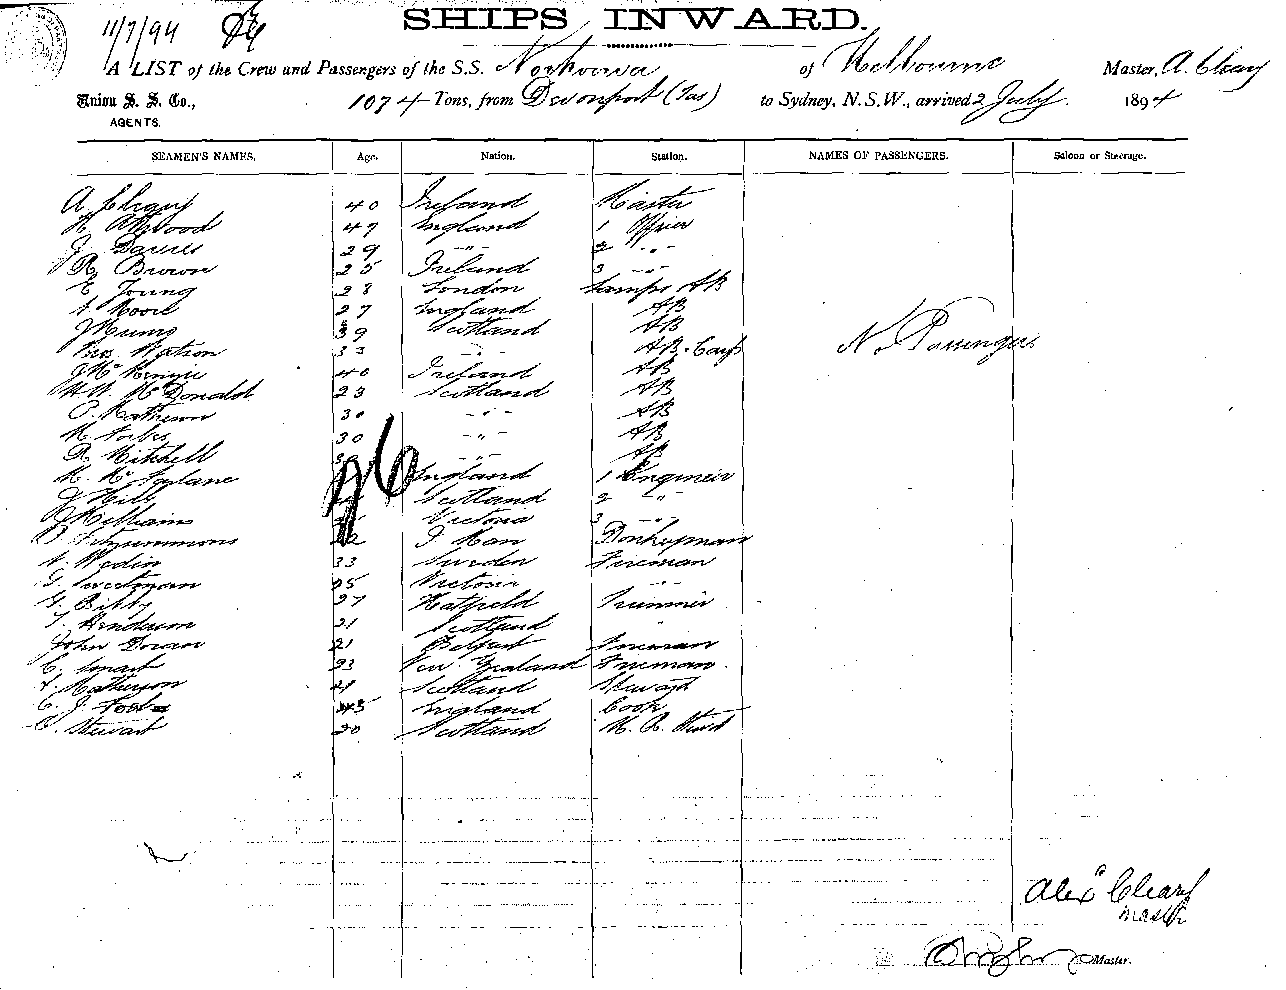 11/7/94
SHIPS INWARD.
A LIST of the Crew and Passengers of the S.S. of Melbourne Master, A. Cleary
Union S. S. Co., 1074 Tons, from Devonport (Tas) to Sydney, N.S.W., arrived 2 July 1894
AGENTS.
SEAMEN'S NAMES. Age. Nation. Station. NAMES OF PASSENGERS. Saloon or Steerage.
A. Cleary 40 Ireland Master
Attwood 47 England 1 Officer
J. Davies 29 -"- 2 -"-
R. Brown 25 Ireland 3 -"-
E. Young 28 London Lamps AB
A. Moore 27 England AB
J Munro 39 Scotland AB
Watson 33 -"- AB
No Passengers
J Mc 40 Ireland AB
McDonald 23 Scotland AB
Matheson 30 -"- AB
Forbes 30 -"- AB
R. Mitchell -"- AB
McFarlane England 1 Engineer
26
Hill Scotland 2 -"-
J Williams Victoria 3 -"-
Fitzsimmons 22 I Man Donkeyman
33 Sweden Fireman
G. Sweetman 25 Victoria -"-
G. Bibby 27 Hatfield Trimmer
Henderson 21 Scotland
John Doran 21 Belfast Fireman
C. Smart 23 New Zealand Fireman
Matheson 21 Scotland Steward
C. J. 45 England Cook
Stewart 20 Scotland
Alexr Cleary
master
Master.